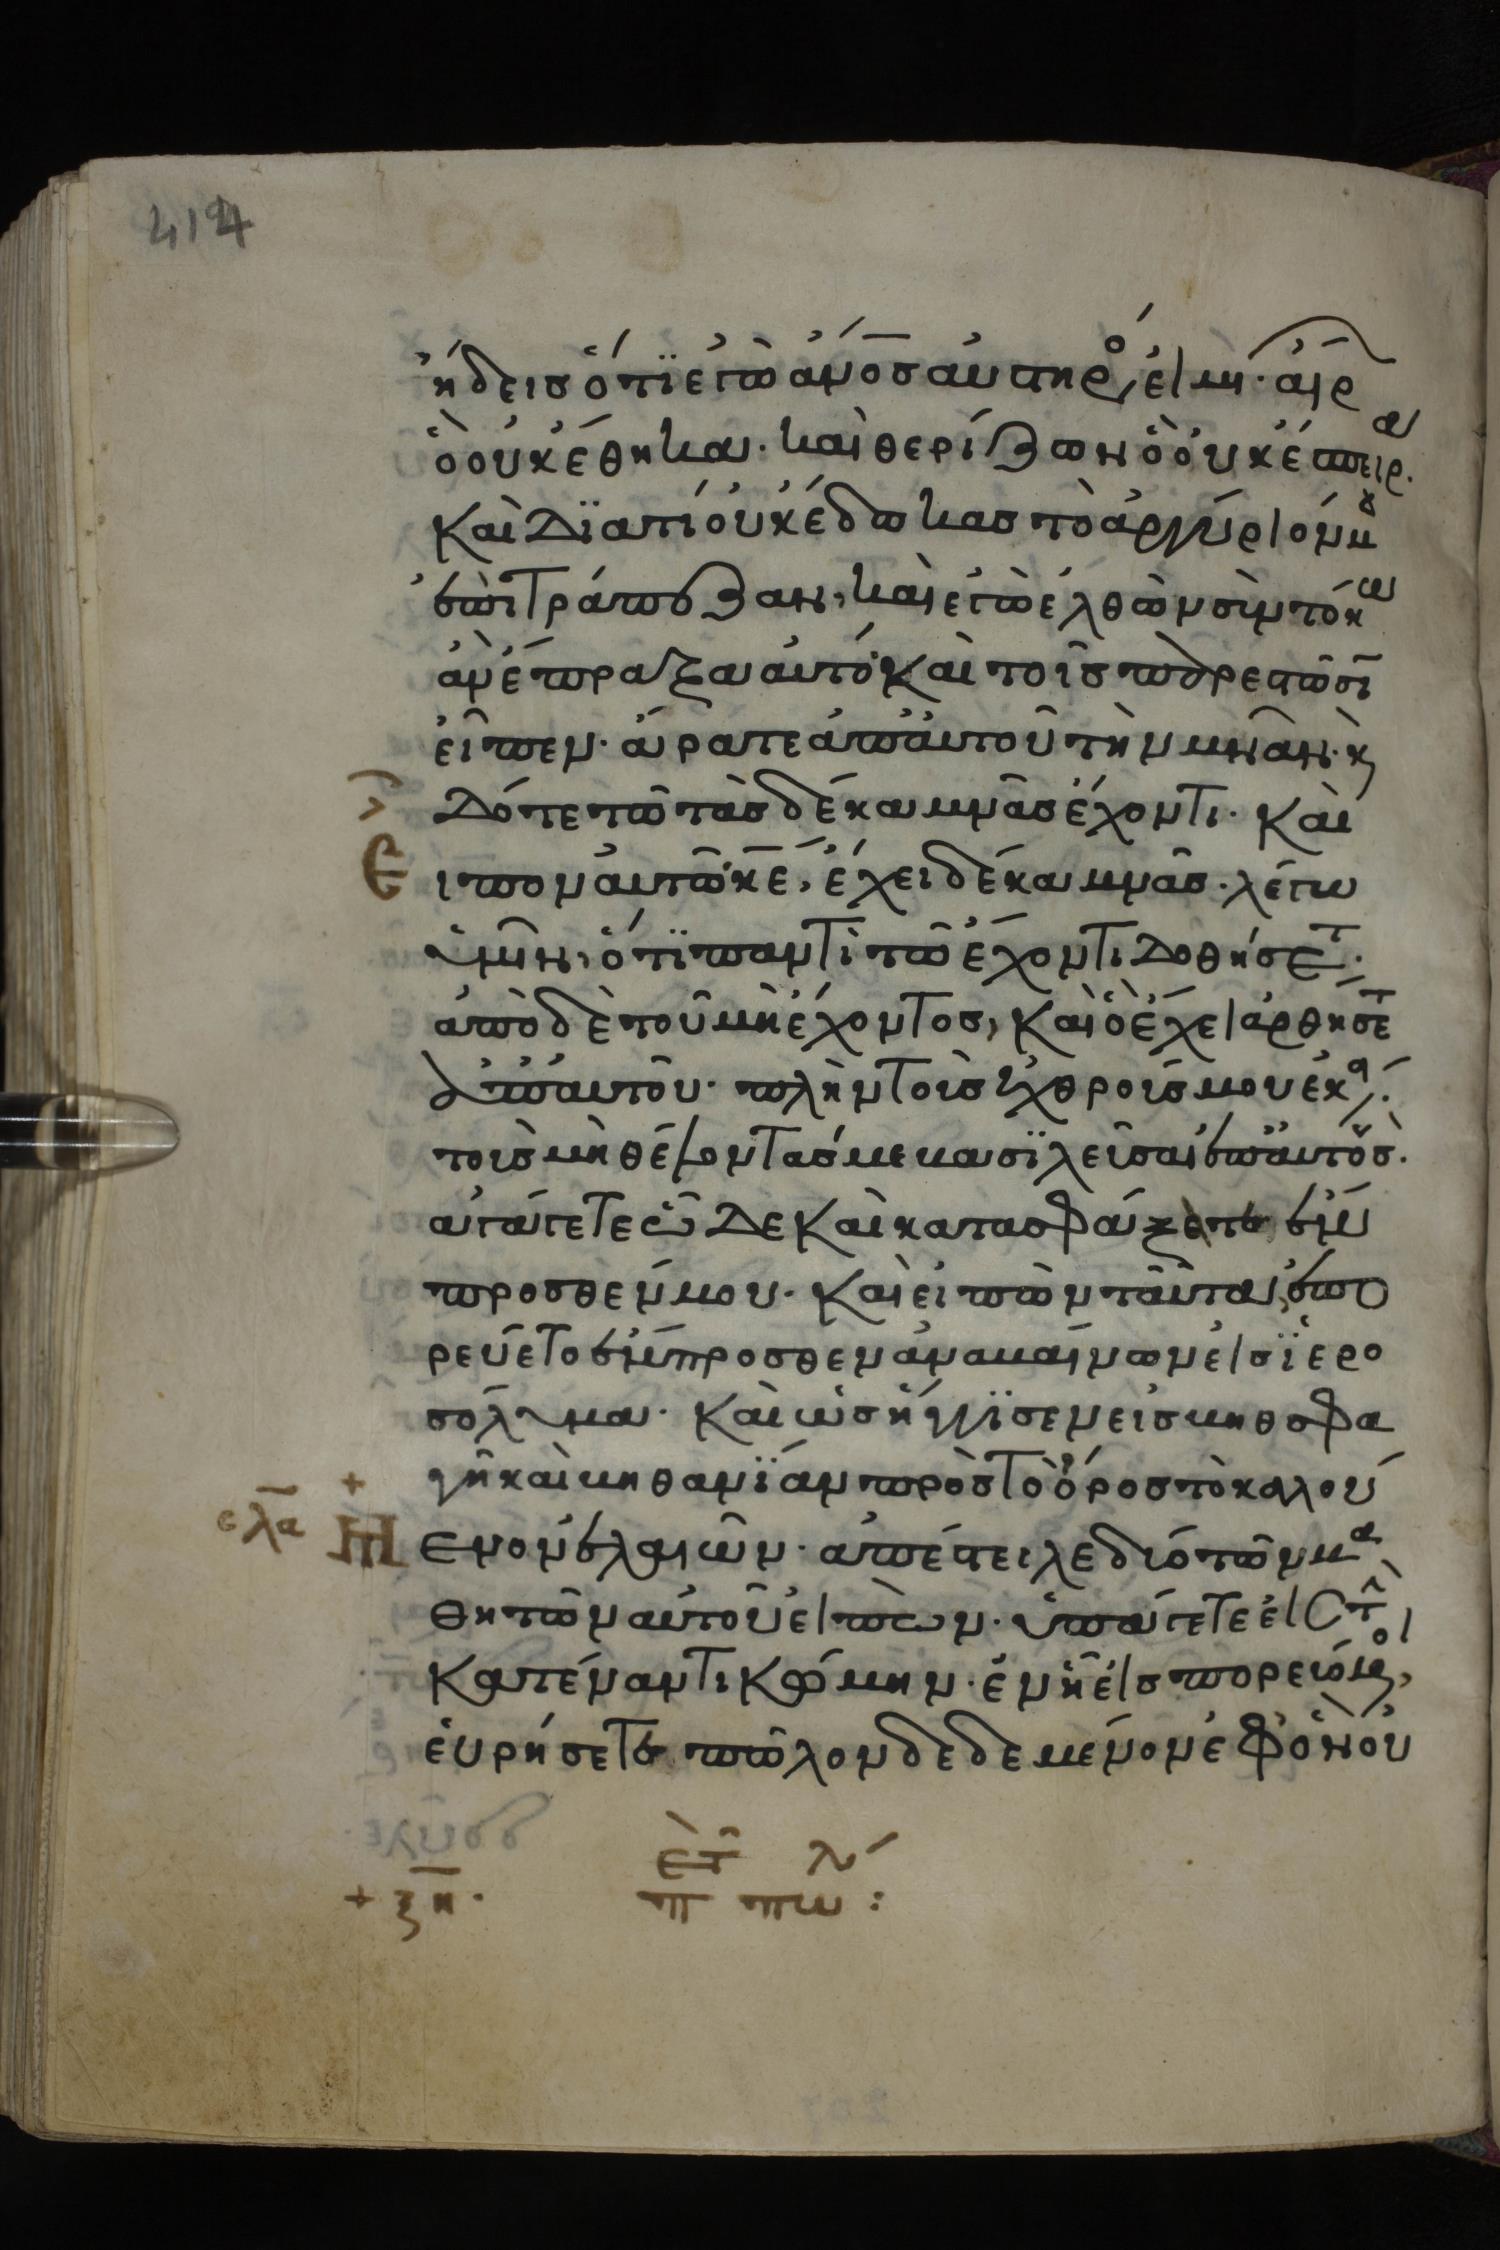 414
ἤδεις ὅτι ἐγὼ ἄνο̅σ αὐστηρό(ς) εἰμι· αἴρ(ων)
ὃ οὐκ ἔθηκα· καὶ θερίζων ὃ οὐκ ἔσπειρα·
Καὶ διατί οὐκ ἔδωκας τὸ ἀργύριόν μου
ἐπὶ τράπεζαν, καὶ ἐγὼ ἐλθὼν σὺν τόκω
ἂν ἔπραξα αὐτό· Καὶ τοῖς παρεστῶσιν
εἶπεν· ἄρατε ἀπ' αὐτοῦ τὴν μνᾶν· κ(αὶ)
Δότε τῶ τὰς δέκα μνᾶς ἔχοντι· Καὶ
εἶπον αὐτῶ κε̅, ἔχει δέκα μνᾶς· λέγω
ὑμῖν, ὅτι παντὶ τῶ ἔχοντι δοθήσετ(αι)·
ἀπὸ δὲ τοῦ μὴ ἔχοντος, Καὶ ὃ ἔχει ἀρθήσετ(αι)
ἀπ' αὐτοῦ· πλὴν τοὺς ἐχθρούς μου ἐκ(είνους)·
τοὺς μὴ θέλοντάς με βασιλεῦσαι ἐπ' αὐτούς·
ἀγάγετε ὧδε Καὶ κατασφάξετε ἔμ
προσθέν μου. Καὶ εἰπὼν ταῦτα, ἐπο
ρεύετο ἔμπροσθεν ἀναβαίνων εἰς ἱερο
σόλυμα· Καὶ ὡς ἤγγισεν εἰς βηθσφα
γῆ καὶ βηθανίαν πρὸς τὸ ὄρος τὸ καλού
μενον ἐλαιῶν· ἀπέστειλε δύο τῶν μα
θητῶν αὐτοῦ εἰπὼν· ὑπάγετε εἰς τὴν
Κατέναντι Κώμην· ἐν ἧ εἰσπορευόμ(εν)οι,
εὑρήσετε πῶλον δεδεμένον ἐφ' ὃν οὐ
σλα̅
+ ξη̅·